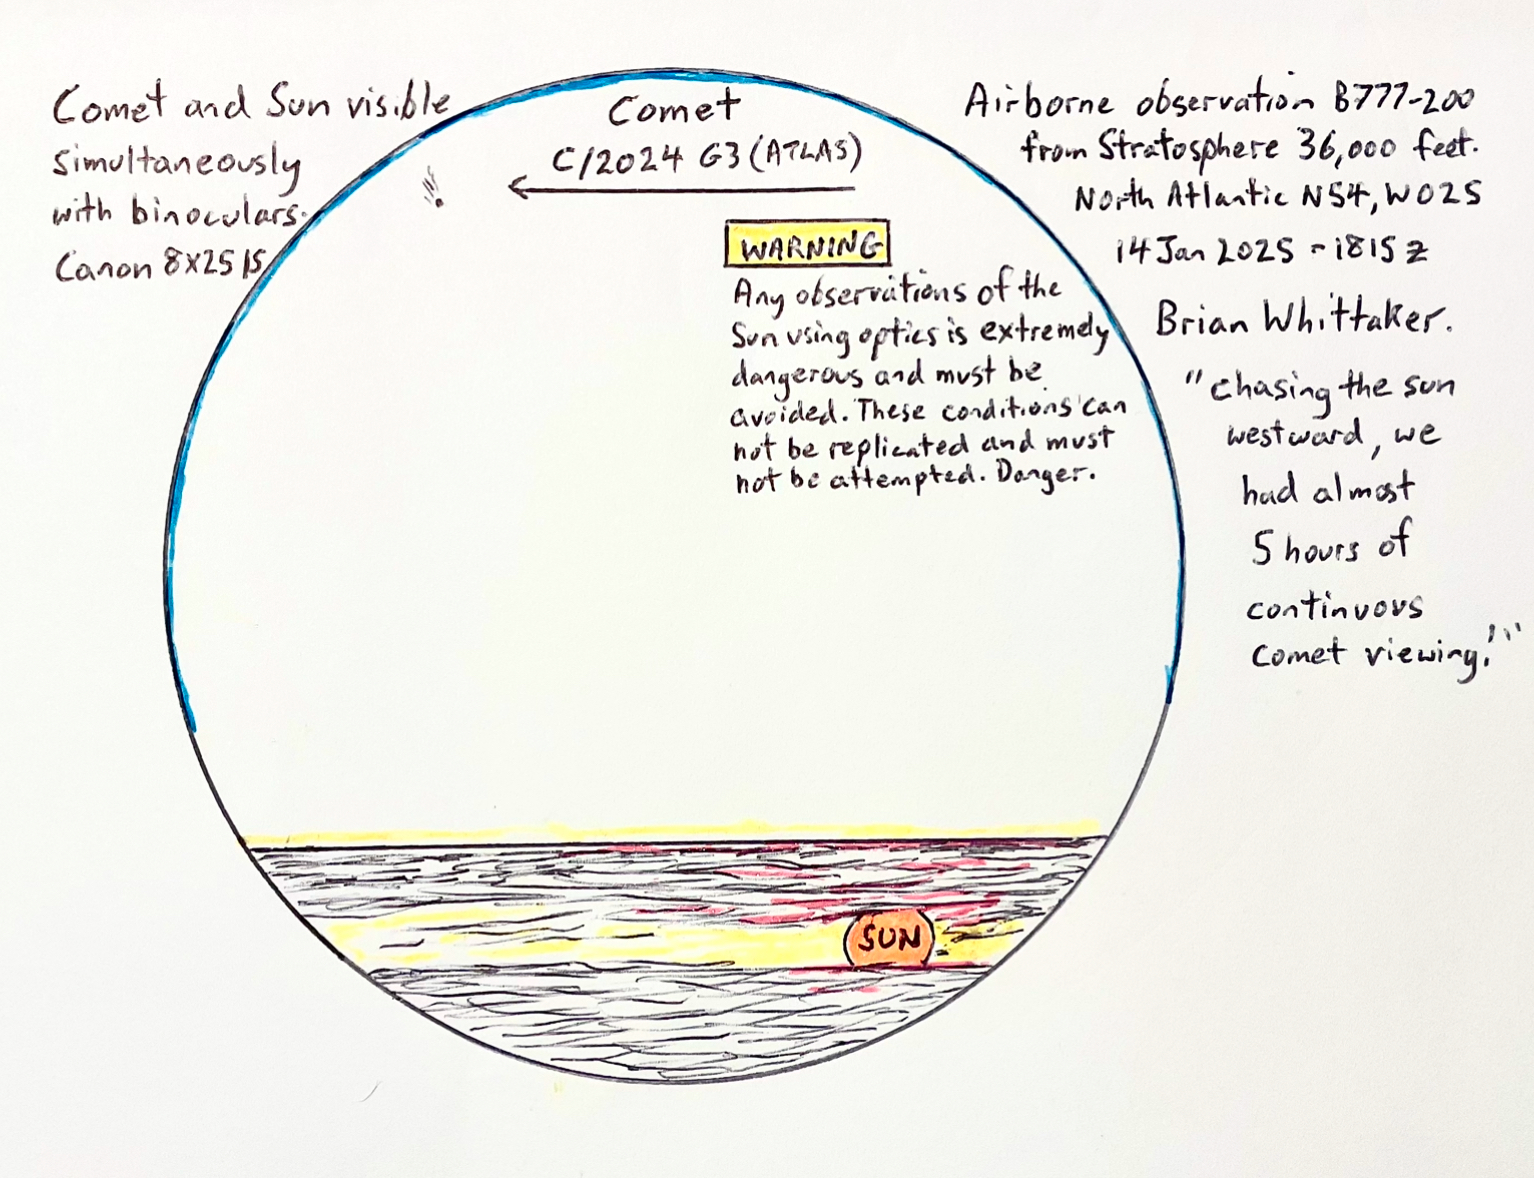 Comet and Sun visible
simultaneously
with binoculars.
Canon 8x25 IS
Comet
C/2024 G3 (ATLAS)
WARNING
Any observations of the
Sun using optics is extremely
dangerous and must be
avoided. These conditions can
not be replicated and must
not be attempted. Danger.
SUN
Airborne observation B777-200
from Stratosphere 36,000 feet.
North Atlantic N54, W025
14 Jan 2025 - 1815 z
Brian Whittaker.
"Chasing the sun
westward, we
had almost
5 hours of
continuous
comet viewing!"